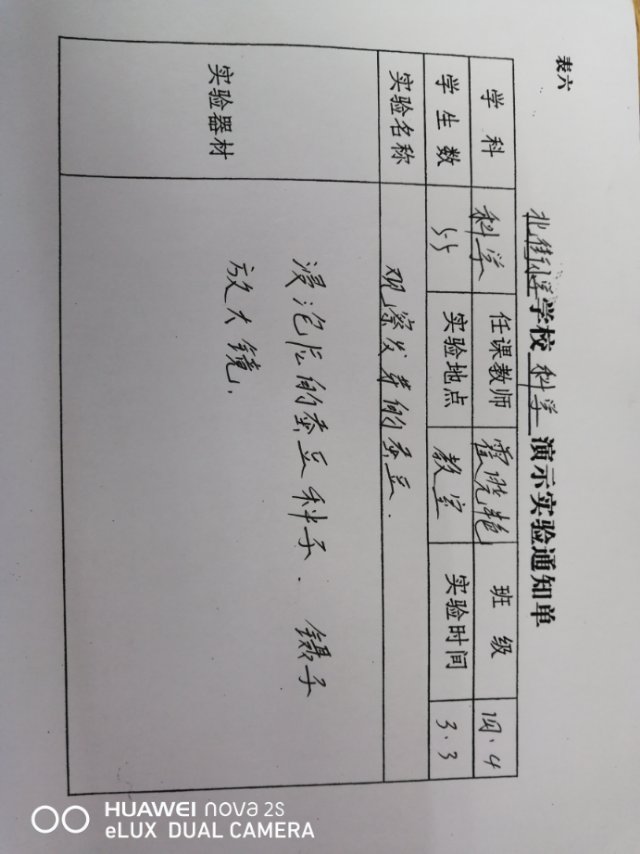 表六
北街小学学校科学演示实验通知单
学科 科学 任课教师 霍晓艳 班级 四.4
学生数 55 实验地点 教室 实验时间 3.3
实验名称 观察发芽的蚕豆.
实验器材 浸泡后的蚕豆种子. 镊子
放大镜.
HUAWEI nova 2S
eLUX DUAL CAMERA